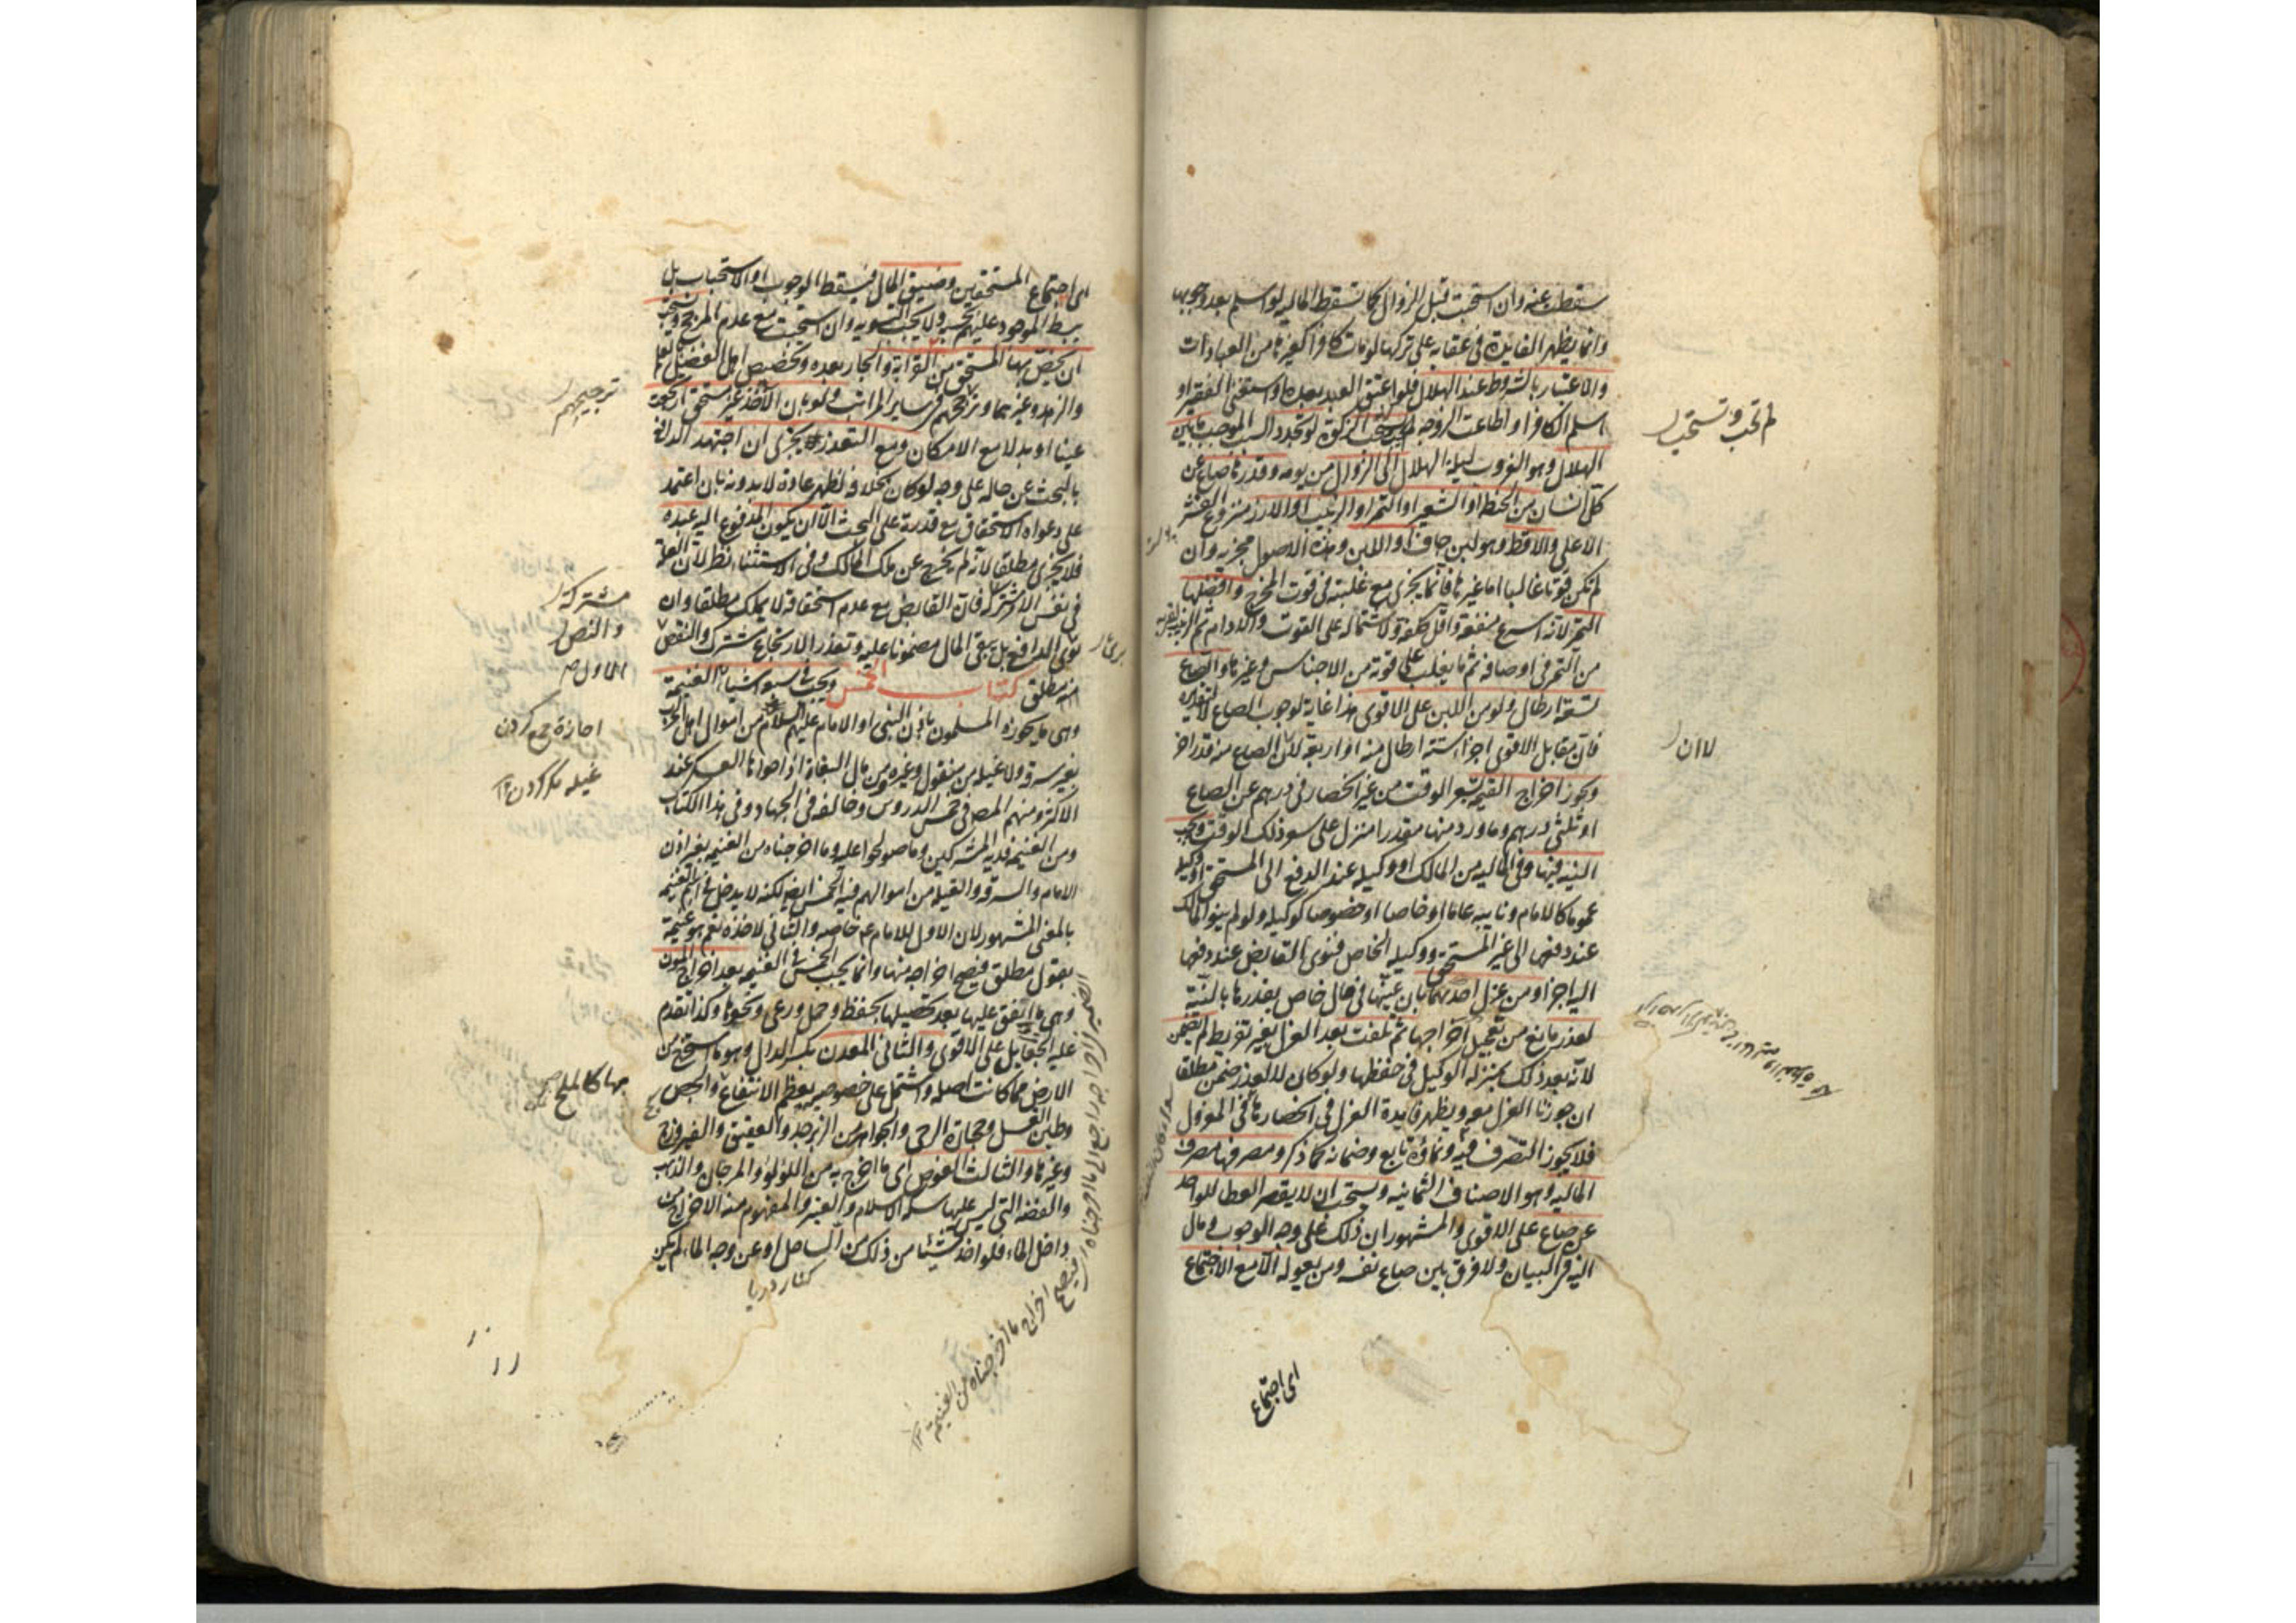 سقطت عنه وان استحبت قبل الزوال كما تسقط المالية لو اسلم بعد وجوبها
وانما يظهر الفايدة في عقابه على تركها لو مات كافرا كغيرها من العبادات
والاعتبار بالشروط عند الهلال فلو اعتق العبد بعده او استغنى الفقير او
اسلم الكافر او اطاعت الزوجة لم يجب الزكوة لو تجدد السبب الموجب ما بين
الهلال وهو الغروب ليلة الهلال الى الزوال من يومه وقدرها صاع عن
كل انسان من الحنطة او الشعير او التمر او الزبيب او الارز منزوع القشر
الاعلى والاقط وهو لبن جاف او اللبن وهذه الاصول مجزية وان
لم تكن قوتا غالبا اما غيرها فانما يجزى مع غلبته في قوت المخرج وافضلها
التمر لانه اسرع منفعة واقل كلفة ولاشتماله على القوت والادام ثم الزبيب لقربه
من التمر في اوصافه ثم ما يغلب على قوته من الاجناس وغيرها والصاع
تسعة ارطال ولو من اللبن على الاقوى هذا غاية لوجوب الصاع لا لتقديره
فان مقابل الاقوى اجزا ستة ارطال منه او اربعة لان الصاع منه قدر اخر
ويجوز اخراج القيمة بسعر الوقت من غير انحصار في درهم عن الصاع
او ثلثي درهم وما ورد منها مقدرا منزل على سعر ذلك الوقت ويجب
النية فيها وفي المالية من المالك او وكيله عند الدفع الى المستحق او وكيله
عموما كالامام ونايبه عاما او خاصا او خصوصا كوكيله ولو لم ينو المالك
عند دفعها الى غير المستحق ووكيله الخاص فنوى القابض عند دفعها
اليه اجزا ومن عزل احديهما بان عينها في مال خاص بقدرها بالنية
لعذر مانع من تعجيل اخراجها ثم تلفت بعد العزل بغير تفريط لم يضمن
لانه بعد ذلك بمنزلة الوكيل في حفظها ولو كان لا لعذر ضمن مطلقا
ان جوزنا العزل معه ويظهر فايدة العزل في انحصارها في المعزول
فلا يجوز التصرف فيه ونماؤه تابع وضمانه كما ذكر ومصرفها مصرف
المالية وهو الاصناف الثمانيه ويستحب ان لا يقصر العطا للواحد
عن صاع على الاقوى والمشهور ان ذلك على وجه الوجوب ومال
اليه في البيان ولا فرق بين صاع نفسه ومن يعوله الا مع الاجتماع
اى اجتماع
لم تجب وتستحب
لا ان
اى اجتماع المستحقين وضيق المال فيسقط الوجوب او الاستحباب بل
يبسط الموجود عليهم بحسبه ولا يجب التسوية وان استحبت مع عدم المرجح ويستحب
ان يخص بها المستحق من القرابة والجار بعده وتخصيص اهل الفضل بالعلم
والزهد وغيرهما وترجيحهم في ساير المراتب ولو بان الاخذ غير مستحق ارتجعت
عينا او بدلا مع الامكان ومع التعذر يجزى ان اجتهد الدافع
بالبحث عن حاله على وجه لو كان بخلافه لظهر عادة لا بدونه بان اعتمد
على دعواه الاستحقاق مع قدرته على البحث الا ان يكون المدفوع اليه عبده
فلا يجزى مطلقا لانه لم يخرج عن ملك المالك وفي الاستثناء نظر لان العلة
في نفس الامر مشتركة فان القابض مع عدم استحقاقه لا يملك مطلقا وان
نوى الدافع بل يبقى المال مضمونا عليه وتعذر الارتجاع مشترك والنقض
انه مطلق كتاب الخمس ويجب في سبعة اشياء الغنيمة
وهى ما يحوزه المسلمون باذن النبى او الامام عليهم السلام من اموال اهل الحرب
بغير سرقة ولا غيلة من منقول وغيره ومن مال البغاة اذا حواها العسكر عند
الاكثر ومنهم المص في خمس الدروس وخالفه في الجهاد وفي هذا الكتاب
ومن الغنيمة فدية المشركين وما صولحوا عليه وما اخرجناه من الغنيمة بغير اذن
الامام والسرقة والغيلة من اموالهم فيه الخمس ايضا لكنه لا يدخل في اسم الغنيمة
بالمعنى المشهور لان الاول للامام ع خاصة والثاني لاخذه نعم هو غنيمة
بقول مطلق فيصح اخراجه منها وانما يجب الخمس في الغنيمة بعد اخراج المؤن
وهى ما انفق عليها بعد تحصيلها بحفظ وحمل ورعى ونحوها وكذا تقدم
عليه الجعايل على الاقوى والثانى المعدن بكسر الدال وهو ما استخرج من
الارض مما كانت اصله واشتمل على خصوصية يعظم الانتفاع والجص
وطين الغسل وحجارة الرحى والجواهر من الزبرجد والعقيق والفيروزج
وغيرها والثالث الغوص اى ما اخرج به من اللؤلؤ والمرجان والذهب
والفضة التى ليس عليها سكة الاسلام والعنبر والمفهوم منه الاخراج من
داخل الماء فلو اخذ شيئا من ذلك من الساحل او عن وجه الماء لم يكن
كنار دريا
ترجيحهم
مشتركة
والنص
اجازه جمع كردن
غيله مكر كردن ١٢
بها كالملح صح
فيصح اخراج ما اخرجناه من الغنيمة ١٢